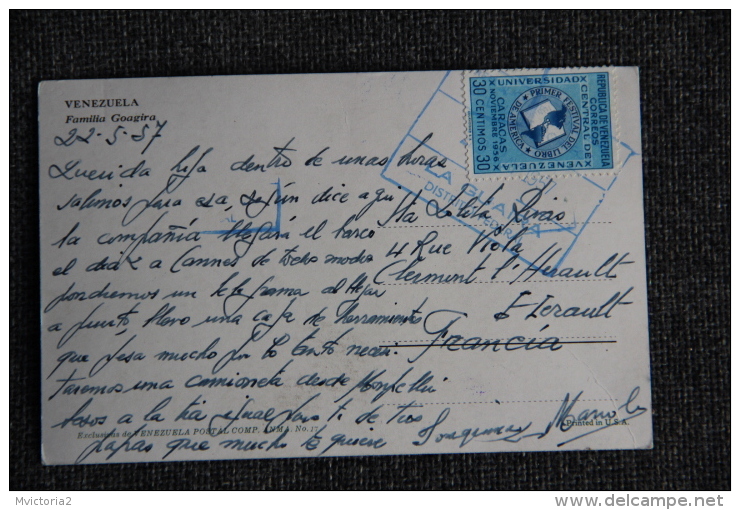 VENEZUELA
Familia Goagira
22-5-57
Querida hija dentro de unas horas
salimos para esa, según dice aqui
la compañía llegará el barco
el dia 2 a Cannes de todos modos
pondremos un telegrama al llegar
a puerto, llevo una caja de herramientas
que pesa mucho por lo tanto necesi-
taremos una camioneta desde Montpellier
besos a la tia igual para ti de tus
papas que mucho te quiere
Manolo
Sta Lolita Rivas
4 Rue Viola
Clermont l'Herault
Herault
Francia
REPUBLICA DE VENEZUELA
CORREOS
UNIVERSIDAD CENTRAL DE VENEZUELA
PRIMER FESTIVAL DEL LIBRO DE AMERICA
CARACAS
NOVIEMBRE 1956
30 CENTIMOS 30
LA GUAIRA
DISTRITO FEDERAL
Exclusivas de VENEZUELA POSTAL COMP. ANMA. No. 17
Printed in U.S.A.
Mvictoria2
delcampe.net